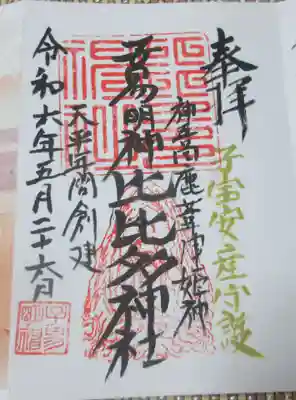 奉拝
子宝安産守護
御祭高鹿葦津姫神
芸易明神比比多神社
天平年間創建
令和六年五月二十六日